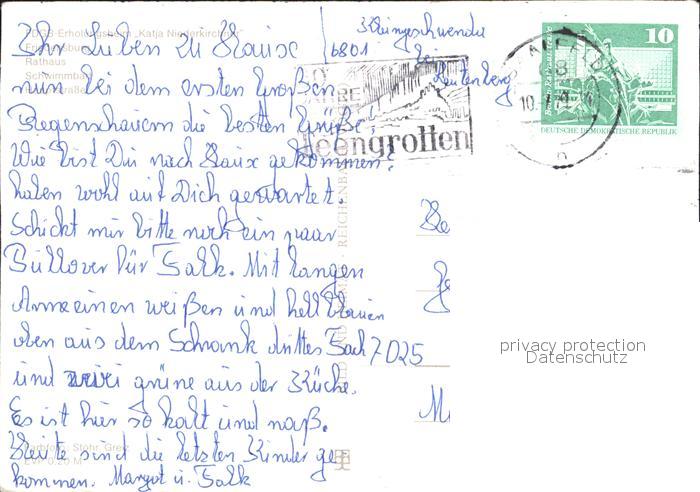 FDGB-Erholungsheim „Katja Niederkirchner“
Rathaus
Schwimmbad
Ihr Lieben zu Hause
nun bei dem ersten großen
Regenschauern die besten Grüße!
Wie bist Du nach Haus gekommen?
haben wohl auf Dich gewartet.
Schickt mir bitte noch ein paar
Pullover für Falk. Mit langen
Armeeinen weißen und hell blauen
oben aus dem Schrank drittes Fach
und zwei grüne aus der Küche.
Es ist hier so kalt und naß.
Heute sind die letzten Kinder ge-
kommen. Margot u. Falk
Farbfoto: Stöhr, Greiz
EVP 0,20 M
6801
Kleingeschwenda
bei
Leutenberg
JAHRE
Feengrotten
SAALFELD
10
DEUTSCHE DEMOKRATISCHE REPUBLIK
7025
M
privacy protection
Datenschutz